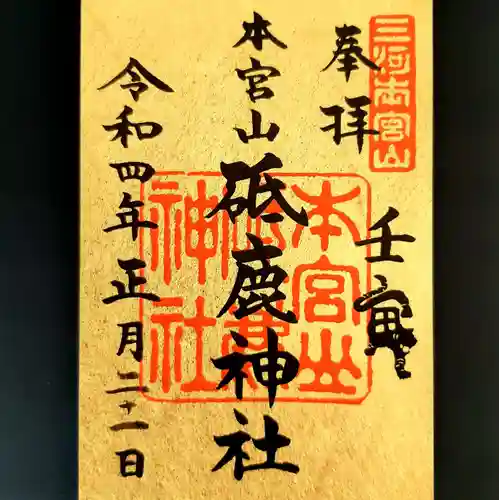 三河本宮山
奉拝
壬寅
本宮山
砥鹿神社
本宮山
神社
令和四年正月二十一日